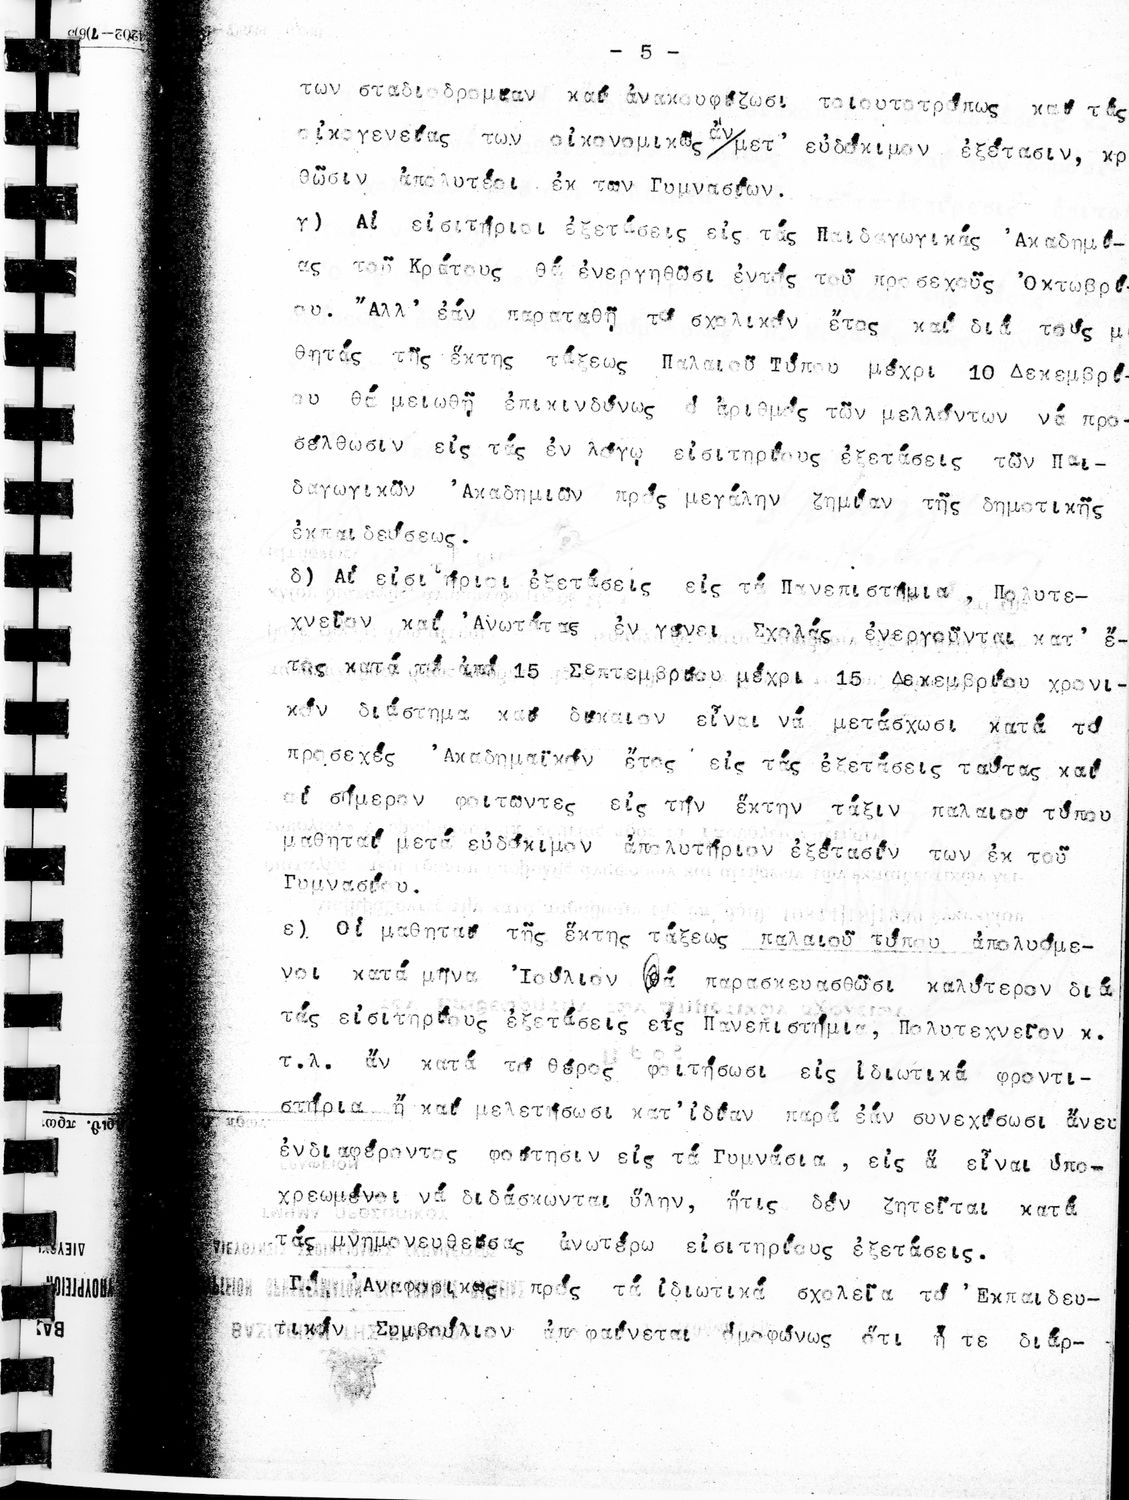 - 5 -
των σταδιοδρομίαν καί ἀνακουφίζωσι τοιουτοτρόπως καί τάς
οἰκογενείας των οἰκονομικῶς ἄν/μετ' εὐδόκιμον ἐξέτασιν, κρ
θῶσιν ἀπολυτέοι ἐκ των Γυμνασίων.
γ) Αἱ εἰσιτήριοι ἐξετάσεις εἰς τάς Παιδαγωγικάς 'Ακαδημί-
ας τοῦ Κράτους θά ἐνεργηθῶσι ἐντός τοῦ προσεχοῦς 'Οκτωβρί-
ου. "Αλλ' ἐάν παραταθῇ τό σχολικόν ἔτος καί διά τούς μ
θητάς τῆς ἕκτης τάξεως Παλαιοῦ Τύπου μέχρι 10 Δεκεμβρί-
ου θά μειωθῇ ἐπικινδύνως ὁ ἀριθμός τῶν μελλόντων νά προ-
σέλθωσιν εἰς τάς ἐν λόγῳ εἰσιτηρίους ἐξετάσεις τῶν Παι-
δαγωγικῶν 'Ακαδημιῶν πρός μεγάλην ζημίαν τῆς δημοτικῆς
ἐκπαιδεύσεως.
δ) Αἱ εἰσιτήριοι ἐξετάσεις εἰς τά Πανεπιστήμια , Πολυτε-
χνεῖον καί 'Ανωτάτας ἐν γένει Σχολάς ἐνεργοῦνται κατ' ἔ-
τος κατά τό ἀπό 15 Σεπτεμβρίου μέχρι 15 Δεκεμβρίου χρονι-
κόν διάστημα καί δίκαιον εἶναι νά μετάσχωσι κατά τό
προσεχές 'Ακαδημαϊκόν ἔτος εἰς τάς ἐξετάσεις ταύτας καί
οἱ σήμερον φοιτῶντες εἰς τήν ἕκτην τάξιν παλαιοῦ τύπου
μαθηταί μετά εὐδόκιμον ἀπολυτήριον ἐξέτασίν των ἐκ τοῦ
Γυμνασίου.
ε) Οἱ μαθηταί τῆς ἕκτης τάξεως παλαιοῦ τύπου ἀπολυόμε-
νοι κατά μῆνα 'Ιούλιον θά παρασκευασθῶσι καλύτερον διά
τάς εἰσιτηρίους ἐξετάσεις εἰς Πανεπιστήμια, Πολυτεχνεῖον κ.
τ.λ. ἄν κατά τό θέρος φοιτήσωσι εἰς ἰδιωτικά φροντι-
στήρια ἤ καί μελετήσωσι κατ'ἰδίαν παρά ἐάν συνεχίσωσι ἄνευ
ἐνδιαφέροντος φοίτησιν εἰς τά Γυμνάσια , εἰς ἅ εἶναι ὑπο-
χρεωμένοι νά διδάσκωνται ὕλην, ἥτις δέν ζητεῖται κατά
τάς μνημονευθείσας ἀνωτέρω εἰσιτηρίους ἐξετάσεις.
Γ. 'Αναφορικῶς πρός τά ἰδιωτικά σχολεῖα τό 'Εκπαιδευ-
τικόν Συμβούλιον ἀποφαίνεται ὁμοφώνως ὅτι ἥ τε διάρ-